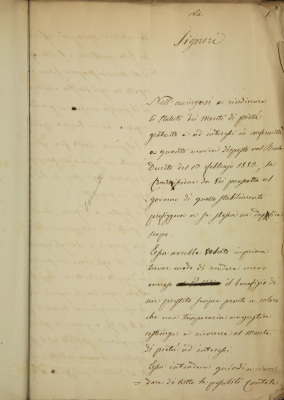 Signori
Nell'accingersi a riordinare
lo Statuto dei monti di pietà
gratuito e ad interessi in conformità
a quanto veniva disposto col Reale
Decreto del 13 febbrajo 1853, la
Commissione da Voi preposta al
governo di quello stabilimento
prefiggeva a se stessa un duplice
scopo
Essa avrebbe voluto in prima
trovar modo di rendere meno
il benefizio di
un prestito sempre pronto a coloro
che una temporaria
costringe a ricorrere al monte
di pietà ad interessi.
Essa intendeva quindi a
dare da tutte le possibili Cautele